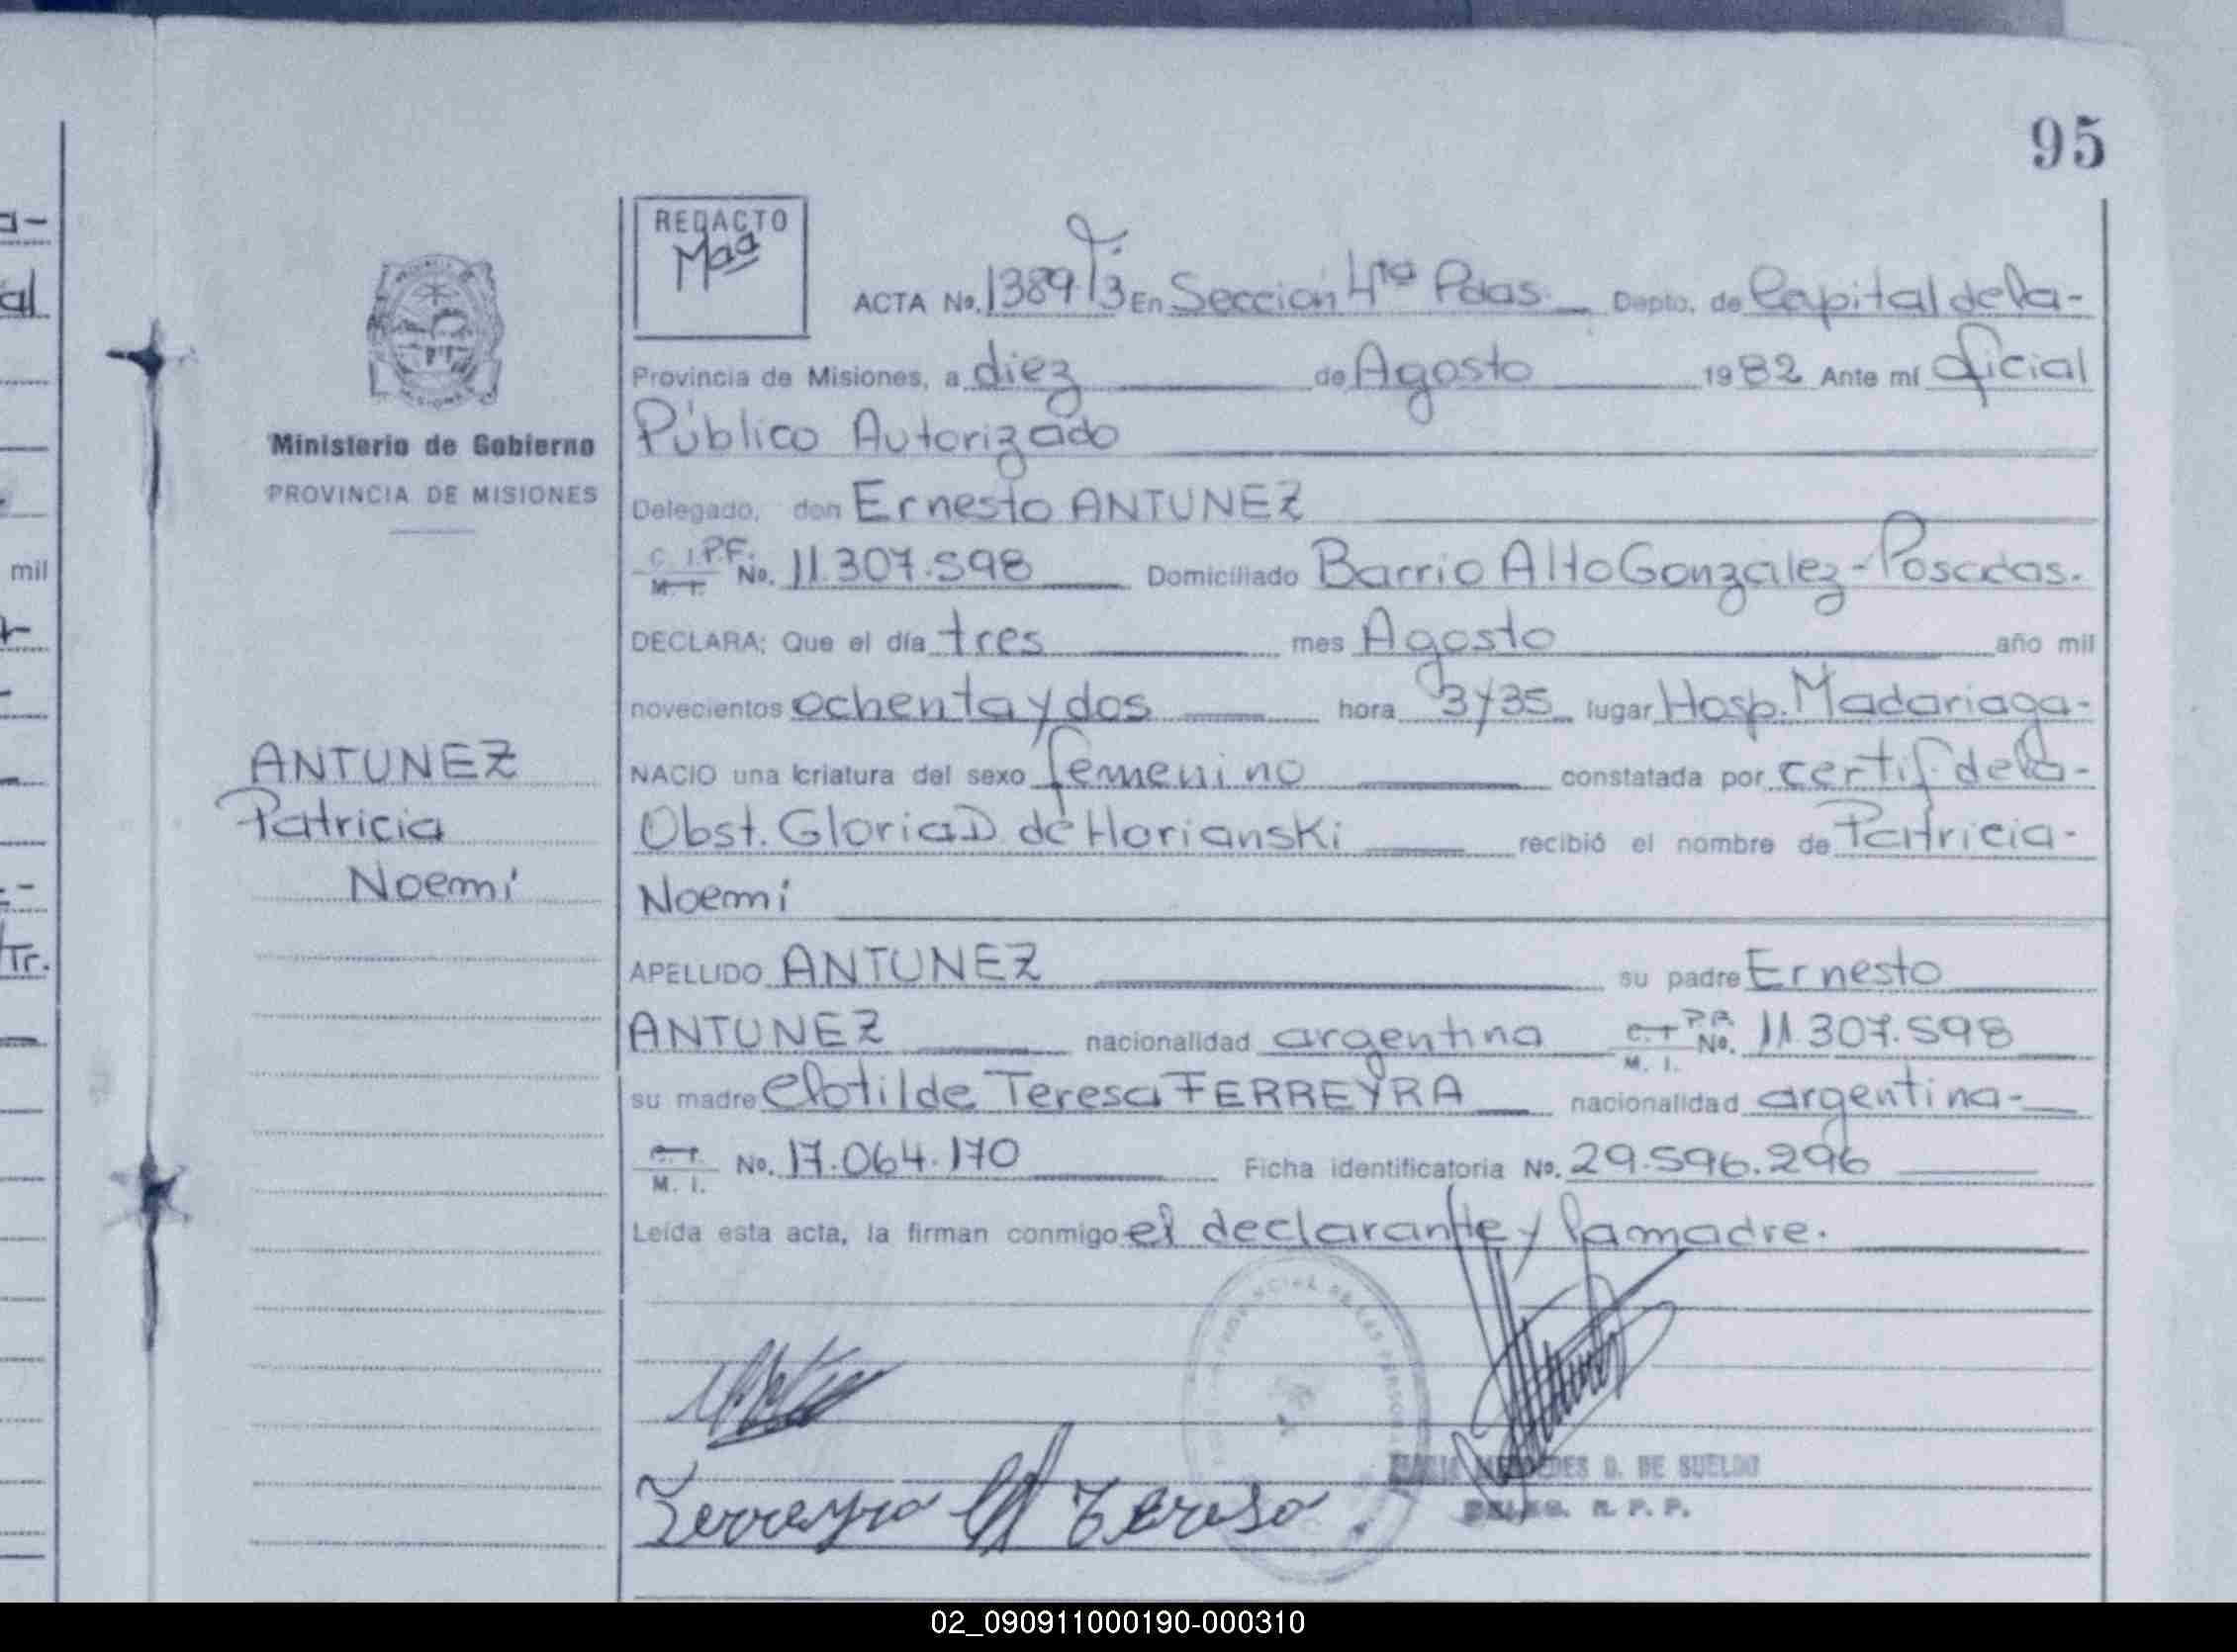 95
REDACTO
Maa
ACTA No. 1389 T3 En Sección 4ta Pdas. Depto. de Capital de la-
Provincia de Misiones, a diez de Agosto 1982 Ante mí Oficial
Público Autorizado
Delegado, don Ernesto ANTUNEZ
C. I. P.F. M. I. No. 11.307.598 Domiciliado Barrio Alto Gonzalez-Posadas.
DECLARA: Que el día tres mes Agosto año mil
novecientos ochenta y dos hora 3y35 lugar Hosp. Madariaga-
NACIO una criatura del sexo femenino constatada por certif. de la-
Obst. Gloria D de Horianski recibió el nombre de Patricia-
Noemí
APELLIDO ANTUNEZ su padre Ernesto
ANTUNEZ nacionalidad argentina C. I. M. I. No. 11.307.598
su madre Clotilde Teresa FERREYRA nacionalidad argentina-
C. I. M. I. No. 17.064.170 Ficha identificatoria No. 29.596.296
Leída esta acta, la firman conmigo el declarante y la madre.
Ferreyra Cl Teresa
MARIA MERCEDES D. DE SUELDO
DELEG. R. P. P.
Ministerio de Gobierno
PROVINCIA DE MISIONES
ANTUNEZ
Patricia
Noemí
al
mil
Tr.
02_090911000190-000310